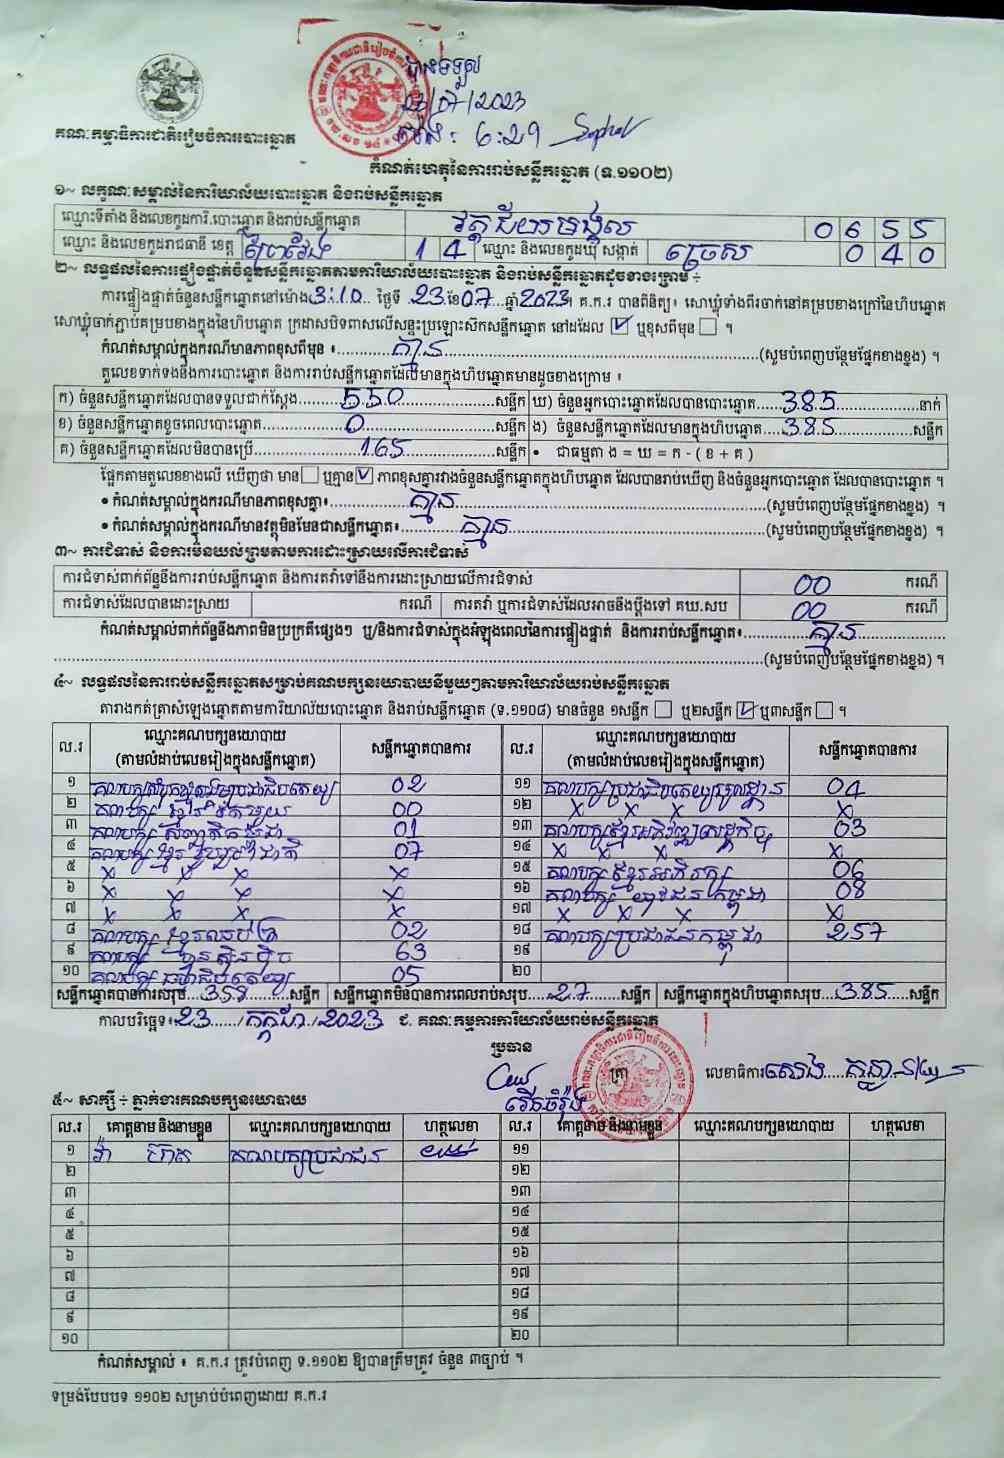 បានទទួល
23/07/2023
ម៉ោង: 6:29
គណៈកម្មាធិការជាតិរៀបចំការបោះឆ្នោត
កំណត់ហេតុនៃការរាប់សន្លឹកឆ្នោត (ទ.១១០២)
១~ លក្ខណៈសម្គាល់នៃការិយាល័យបោះឆ្នោត និងរាប់សន្លឹកឆ្នោត
ឈ្មោះទីតាំង និងលេខកូដការិ.បោះឆ្នោត និងរាប់សន្លឹកឆ្នោត វត្តជ័យមង្គល 0655
ឈ្មោះ និងលេខកូដរាជធានី ខេត្ត ព្រៃវែង 14 ឈ្មោះ និងលេខកូដឃុំ សង្កាត់ ច្រេស 040
២~ លទ្ធផលនៃការផ្ទៀងផ្ទាត់ចំនួនសន្លឹកឆ្នោតតាមការិយាល័យបោះឆ្នោត និងរាប់សន្លឹកឆ្នោតដូចខាងក្រោម ÷
ការផ្ទៀងផ្ទាត់ចំនួនសន្លឹកឆ្នោតនៅម៉ោង 3:10 ថ្ងៃទី 23 ខែ 07 ឆ្នាំ 2023។ គ.ក.រ បានពិនិត្យ៖ សោឃ្លុំទាំងពីរចាក់នៅគម្របខាងក្រៅនៃហិបឆ្នោត
សោឃ្លុំចាក់ភ្ជាប់គម្របខាងក្នុងនៃហិបឆ្នោត ក្រដាសបិទពាសលើសន្ទះប្រឡោះស៊កសន្លឹកឆ្នោត នៅដដែល ☑ ឬខុសពីមុន ☐ ។
កំណត់សម្គាល់ក្នុងករណីមានភាពខុសពីមុន ៖ គ្មាន (សូមបំពេញបន្ថែមផ្នែកខាងខ្នង) ។
តួលេខទាក់ទងនឹងការបោះឆ្នោត និងការរាប់សន្លឹកឆ្នោតដែលមានក្នុងហិបឆ្នោតមានដូចខាងក្រោម ៖
ក) ចំនួនសន្លឹកឆ្នោតដែលបានទទួលជាក់ស្តែង 550 សន្លឹក ឃ) ចំនួនអ្នកបោះឆ្នោតដែលបានបោះឆ្នោត 385 នាក់
ខ) ចំនួនសន្លឹកឆ្នោតខូចពេលបោះឆ្នោត 0 សន្លឹក ង) ចំនួនសន្លឹកឆ្នោតដែលមានក្នុងហិបឆ្នោត 385 សន្លឹក
គ) ចំនួនសន្លឹកឆ្នោតដែលមិនបានប្រើ 165 សន្លឹក • ជាធម្មតា ង = ឃ = ក - ( ខ + គ )
ផ្អែកតាមតួលេខខាងលើ ឃើញថា មាន ☐ ឬគ្មាន ☑ ភាពខុសគ្នារវាងចំនួនសន្លឹកឆ្នោតក្នុងហិបឆ្នោត ដែលបានរាប់ឃើញ និងចំនួនអ្នកបោះឆ្នោត ដែលបានបោះឆ្នោត ។
• កំណត់សម្គាល់ក្នុងករណីមានភាពខុសគ្នា៖ គ្មាន (សូមបំពេញបន្ថែមផ្នែកខាងខ្នង) ។
• កំណត់សម្គាល់ក្នុងករណីមានវត្ថុមិនមែនជាសន្លឹកឆ្នោត៖ គ្មាន (សូមបំពេញបន្ថែមផ្នែកខាងខ្នង) ។
៣~ ការជំទាស់ និងការមិនយល់ព្រមតាមការដោះស្រាយលើការជំទាស់
ការជំទាស់ពាក់ព័ន្ធនឹងការរាប់សន្លឹកឆ្នោត និងការតវ៉ាទៅនឹងការដោះស្រាយលើការជំទាស់ 00 ករណី
ការជំទាស់ដែលបានដោះស្រាយ ករណី ការតវ៉ា ឬការជំទាស់ដែលអាចនឹងប្តឹងទៅ គឃ.សប 00 ករណី
កំណត់សម្គាល់ពាក់ព័ន្ធនឹងភាពមិនប្រក្រតីផ្សេងៗ ឬ/និងការជំទាស់ក្នុងអំឡុងពេលនៃការផ្ទៀងផ្ទាត់ និងការរាប់សន្លឹកឆ្នោត៖ គ្មាន
(សូមបំពេញបន្ថែមផ្នែកខាងខ្នង) ។
៤~ លទ្ធផលនៃការរាប់សន្លឹកឆ្នោតសម្រាប់គណបក្សនយោបាយនីមួយៗតាមការិយាល័យរាប់សន្លឹកឆ្នោត
តារាងកត់ត្រាសំឡេងឆ្នោតតាមការិយាល័យបោះឆ្នោត និងរាប់សន្លឹកឆ្នោត (ទ.១១០៨) មានចំនួន ១សន្លឹក ☐ ឬ២សន្លឹក ☑ ឬ៣សន្លឹក ☐ ។
ល.រ ឈ្មោះគណបក្សនយោបាយ សន្លឹកឆ្នោតបានការ ល.រ ឈ្មោះគណបក្សនយោបាយ សន្លឹកឆ្នោតបានការ
(តាមលំដាប់លេខរៀងក្នុងសន្លឹកឆ្នោត) (តាមលំដាប់លេខរៀងក្នុងសន្លឹកឆ្នោត)
១ គណបក្ស 02 ១១ គណបក្សប្រជាធិបតេយ្យមូលដ្ឋាន 04
២ គណបក្ស 00 ១២ x x x x
៣ គណបក្ស 01 ១៣ គណបក្សខ្មែរអភិវឌ្ឍន៍សេដ្ឋកិច្ច 03
៤ គណបក្ស ខ្មែររួបរួមជាតិ 07 ១៤ x x x x
៥ x x x x ១៥ គណបក្សខ្មែរអភិរក្ស 06
៦ x x x x ១៦ គណបក្ស យុវជនកម្ពុជា 08
៧ x x x x ១៧ x x x x
៨ គណបក្ស ខ្មែរឈប់ក្រ 02 ១៨ គណបក្សប្រជាជនកម្ពុជា 257
៩ គណបក្ស ហ្វ៊ុនស៊ិនប៉ិច 63 ១៩
១០ គណបក្ស 05 ២០
សន្លឹកឆ្នោតបានការសរុប 358 សន្លឹក សន្លឹកឆ្នោតមិនបានការពេលរាប់សរុប 27 សន្លឹក សន្លឹកឆ្នោតក្នុងហិបឆ្នោតសរុប 385 សន្លឹក
កាលបរិច្ឆេទ៖ 23 / កក្កដា / 2023 ជ. គណៈកម្មការការិយាល័យរាប់សន្លឹកឆ្នោត
ប្រធាន
ត្រា លេខាធិការ
៥~ សាក្សី ÷ ភ្នាក់ងារគណបក្សនយោបាយ
ល.រ គោត្តនាម និងនាមខ្លួន ឈ្មោះគណបក្សនយោបាយ ហត្ថលេខា ល.រ គោត្តនាម និងនាមខ្លួន ឈ្មោះគណបក្សនយោបាយ ហត្ថលេខា
១ គណបក្សប្រជាជន ១១
២ ១២
៣ ១៣
៤ ១៤
៥ ១៥
៦ ១៦
៧ ១៧
៨ ១៨
៩ ១៩
១០ ២០
កំណត់សម្គាល់ ៖ គ.ក.រ ត្រូវបំពេញ ទ.១១០២ ឱ្យបានត្រឹមត្រូវ ចំនួន ៣ច្បាប់ ។
ទម្រង់បែបបទ ១១០២ សម្រាប់បំពេញដោយ គ.ក.រ